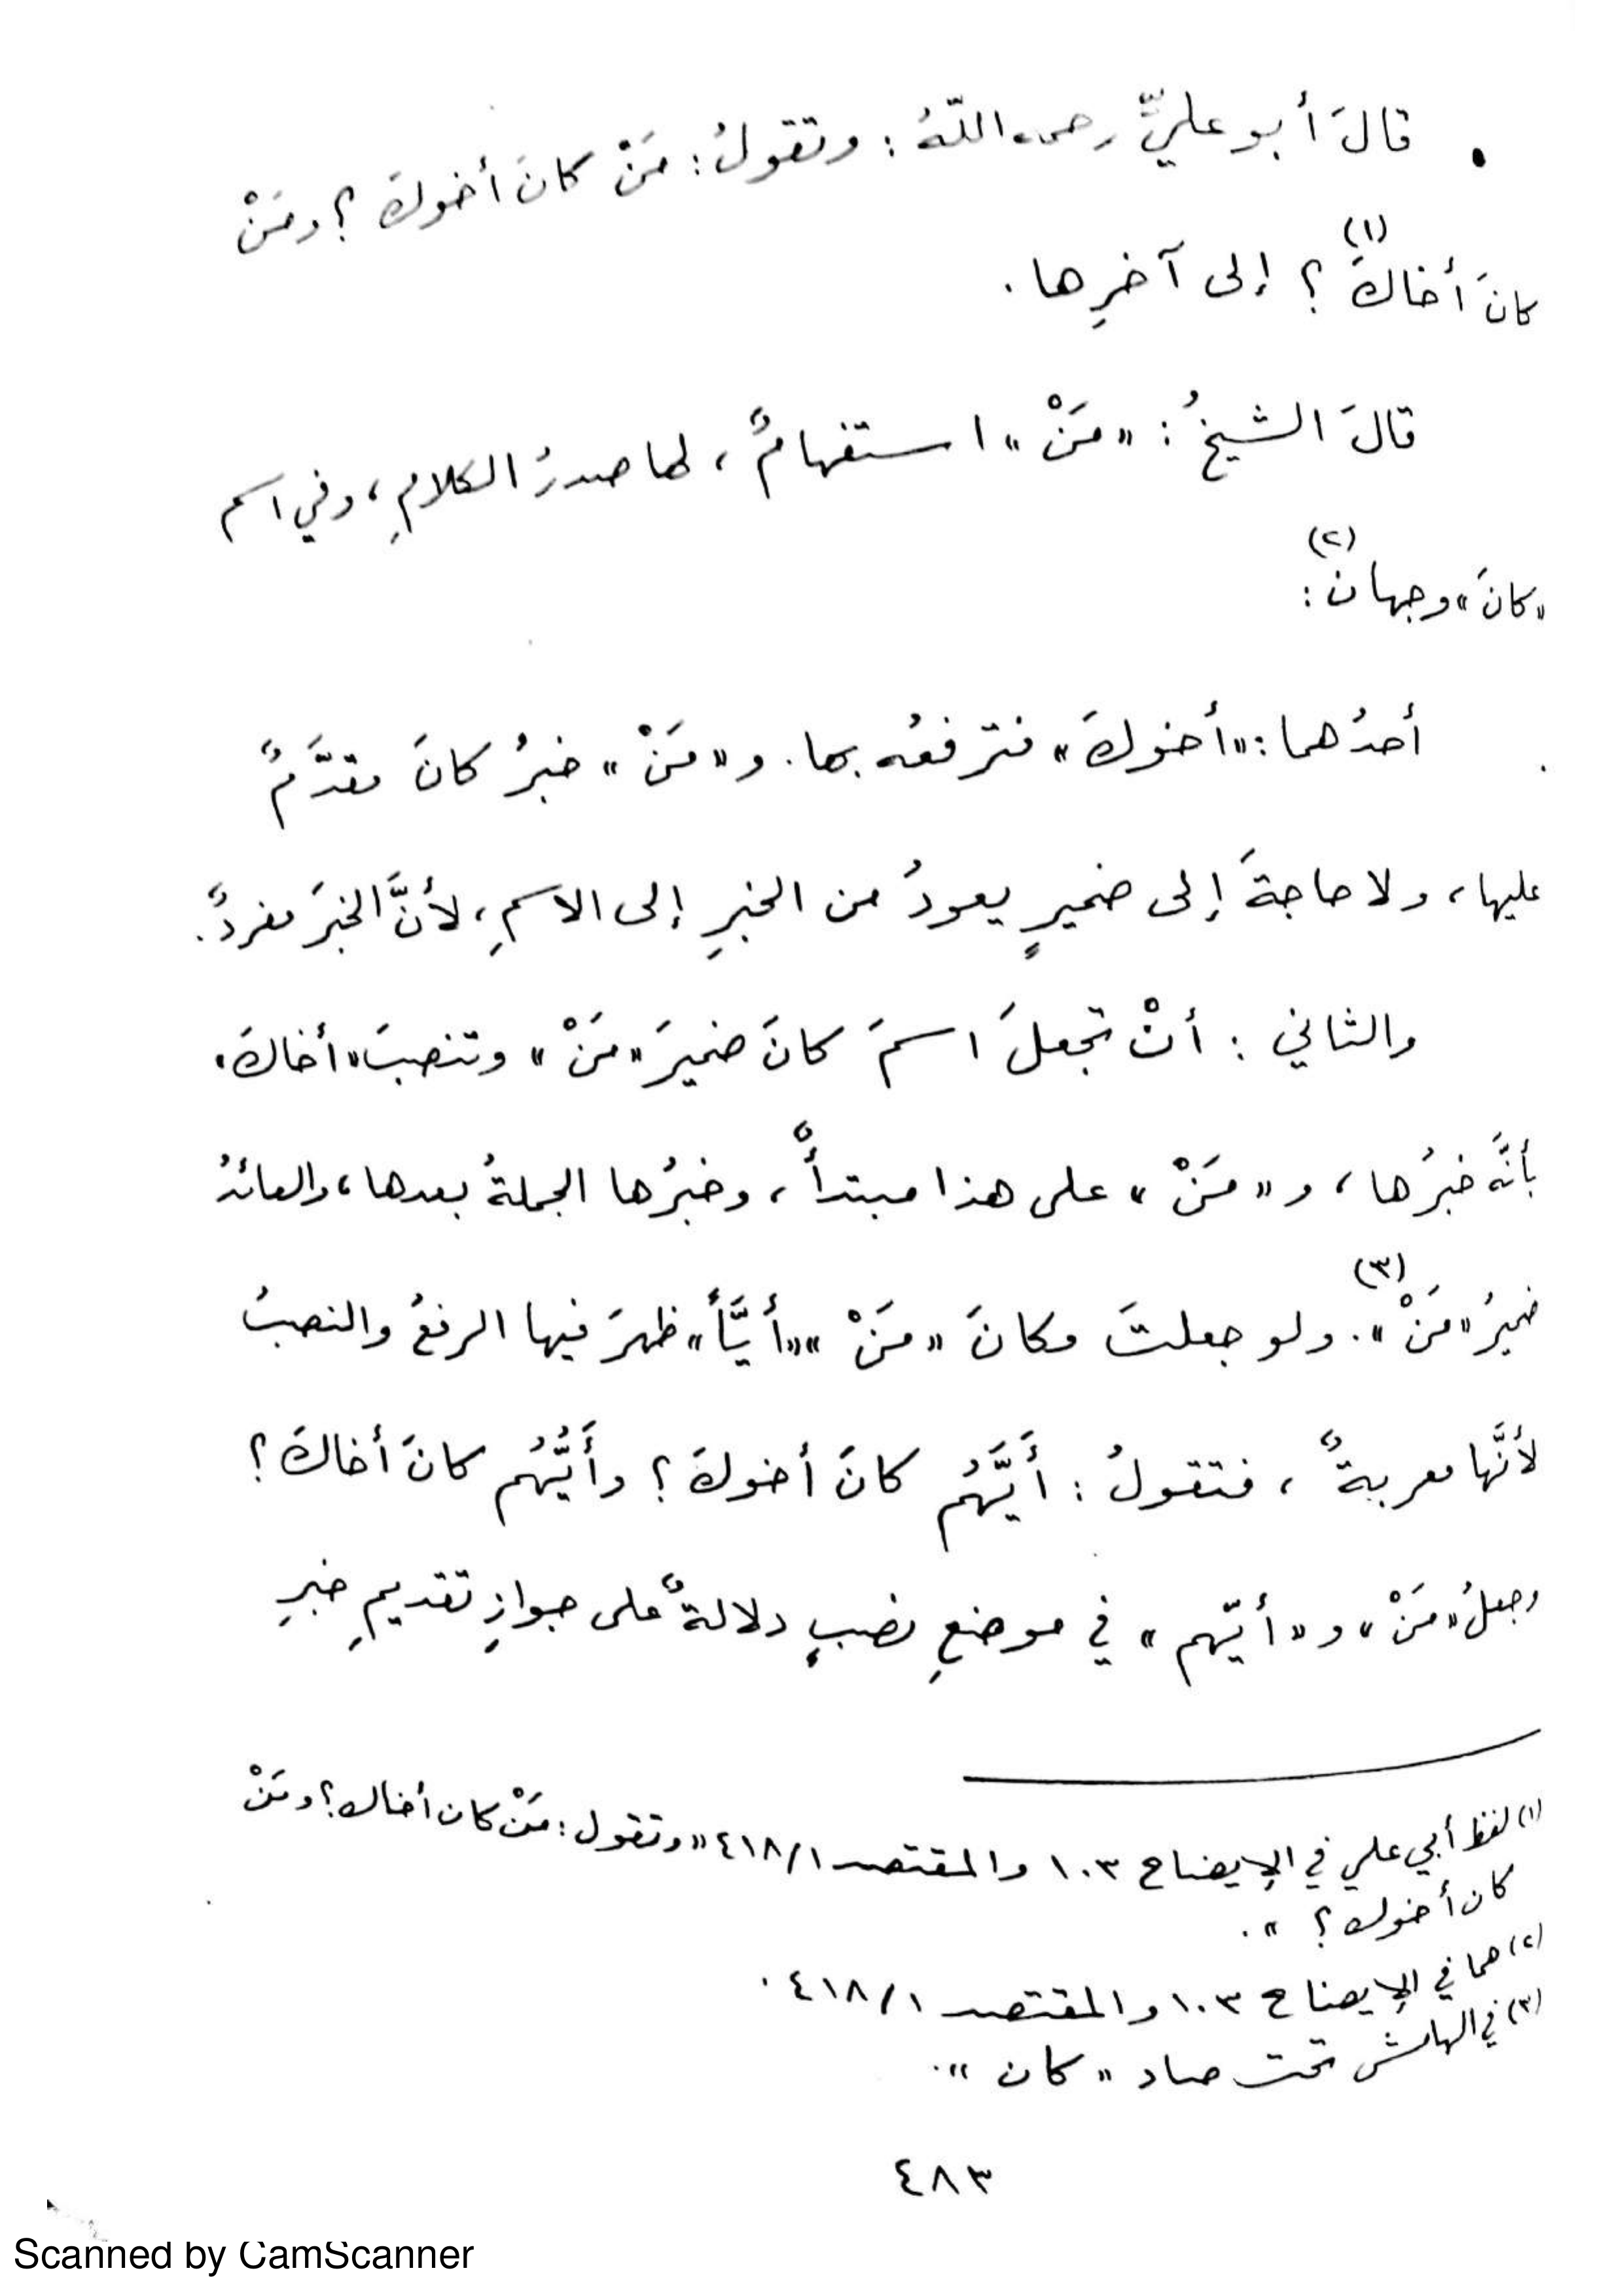 • قالَ أبو عليٍّ رحمه اللّهُ : وتقولُ : مَنْ كانَ أخوكَ ؟ ومَنْ
كانَ أخاكَ (١) ؟ إلى آخرِها .
قالَ الشيخُ : « مَنْ » استفهامٌ ، لها صدرُ الكلامِ ، وفي اسم
« كانَ » وجهان (٢) :
أحدُهما : « أخوكَ » فترفعُه بها . و « مَنْ » خبرُ كانَ مقدَّمٌ
عليها ، ولا حاجةَ إلى ضميرٍ يعودُ من الخبرِ إلى الاسمِ ، لأنَّ الخبرَ مفردٌ .
والثاني : أنْ تجعلَ اسمَ كانَ ضميرَ « مَنْ » وتنصبَ « أخاكَ »
بأنَّه خبرُها ، و « مَنْ » على هذا مبتدأٌ ، وخبرُها الجملةُ بعدها ، والعائدُ
ضميرُ « مَنْ » (٣) . ولو جعلتَ مكانَ « مَنْ » « أيَّاً » ظهرَ فيها الرفعُ والنصبُ
لأنَّها معربةٌ ، فتقولُ : أَيَّهُم كانَ أخوكَ ؟ وأَيُّهُم كانَ أخاكَ ؟
وجعلُ « مَنْ » و « أيّهم » في موضعِ نصبٍ دلالةٌ على جوازِ تقديمِ خبرِ
(١) لفظ أبي علي في الإيضاح ١٠٣ والمقتصد ٤١٨/١ « وتقول : مَنْ كان أخاك ؟ ومَنْ
كان أخوك ؟ » .
(٢) هما في الإيضاح ١٠٣ والمقتصد ٤١٨/١ .
(٣) في الهامش تحت صاد « كان » .
٤٨٣
Scanned by CamScanner